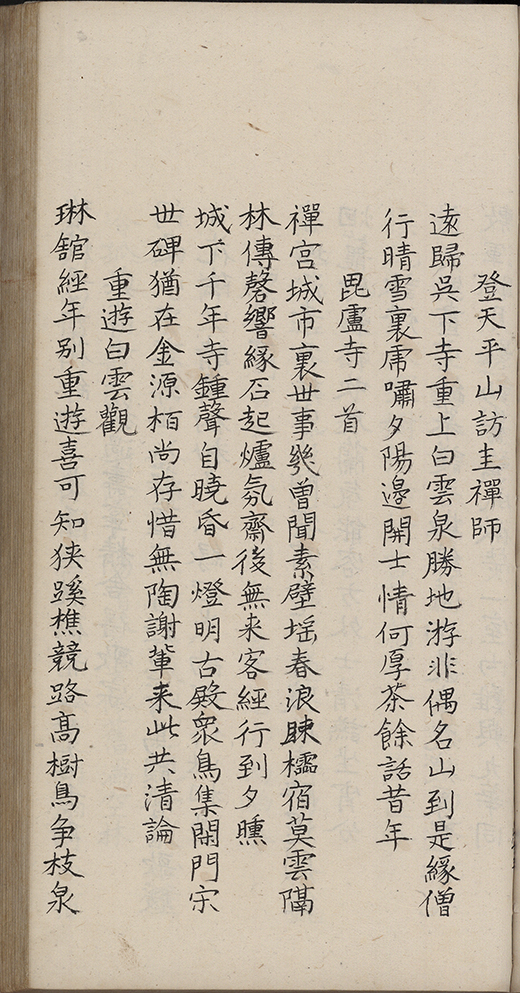 登天平山訪圭禪師
遠歸吳下寺重上白雲泉勝地游非偶名山到是緣僧
行晴雪裏虎嘯夕陽邊開士情何厚茶餘話昔年
毘盧寺二首
禪宮城市裏世事幾曾聞素壁摇春浪疎櫺宿莫雲隔
林傳磬響緣石起爐氛齋後無来客經行到夕曛
城下千年寺鍾聲自曉昏一燈明古殿衆鳥集閑門宋
世碑猶在金源栢尚存惜無陶謝輩来此共清論
重遊白雲觀
琳舘經年别重遊喜可知狹蹊樵競路髙樹鳥争枝泉